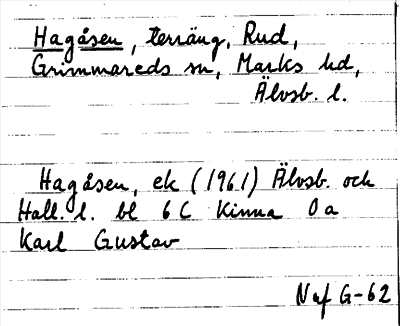 Hagåsen, terräng, Rud,
Grimmareds sn, Marks hd,
Älvsb. l.
Hagåsen, ek (1961) Älvsb. och
Hall. l. bl 6 C Kinna 0 a
Karl Gustav
Naf G-62